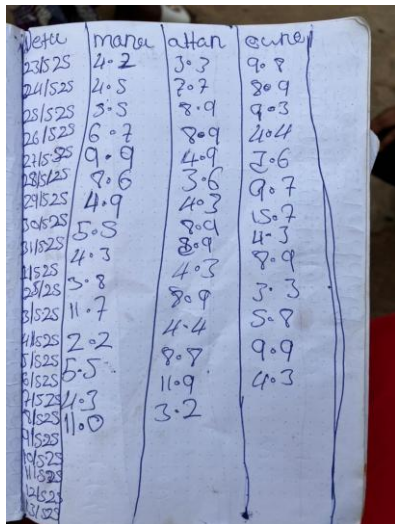 Netu mana attan cuna
23/525 4.2 3.3 9.8
24/525 4.5 7.7 8.9
25/525 5.5 8.9 9.3
26/525 6.7 8.9 4.4
27/5.25 9.9 4.9 3.6
28/5/25 8.6 3.6 9.7
29/525 4.9 4.3 15.7
30/525 5.5 8.9 4.3
31/525 4.3 8.9 8.9
1/525 3.8 4.3 3.3
25/25 11.7 8.9 5.8
3/525 2.2 4.4 9.9
4/525 5.5 8.8 4.3
5/525 4.3 11.9
6/525 11.0 3.2
7/525
8/525
9/525
10/525
11/525
12/525
13/525